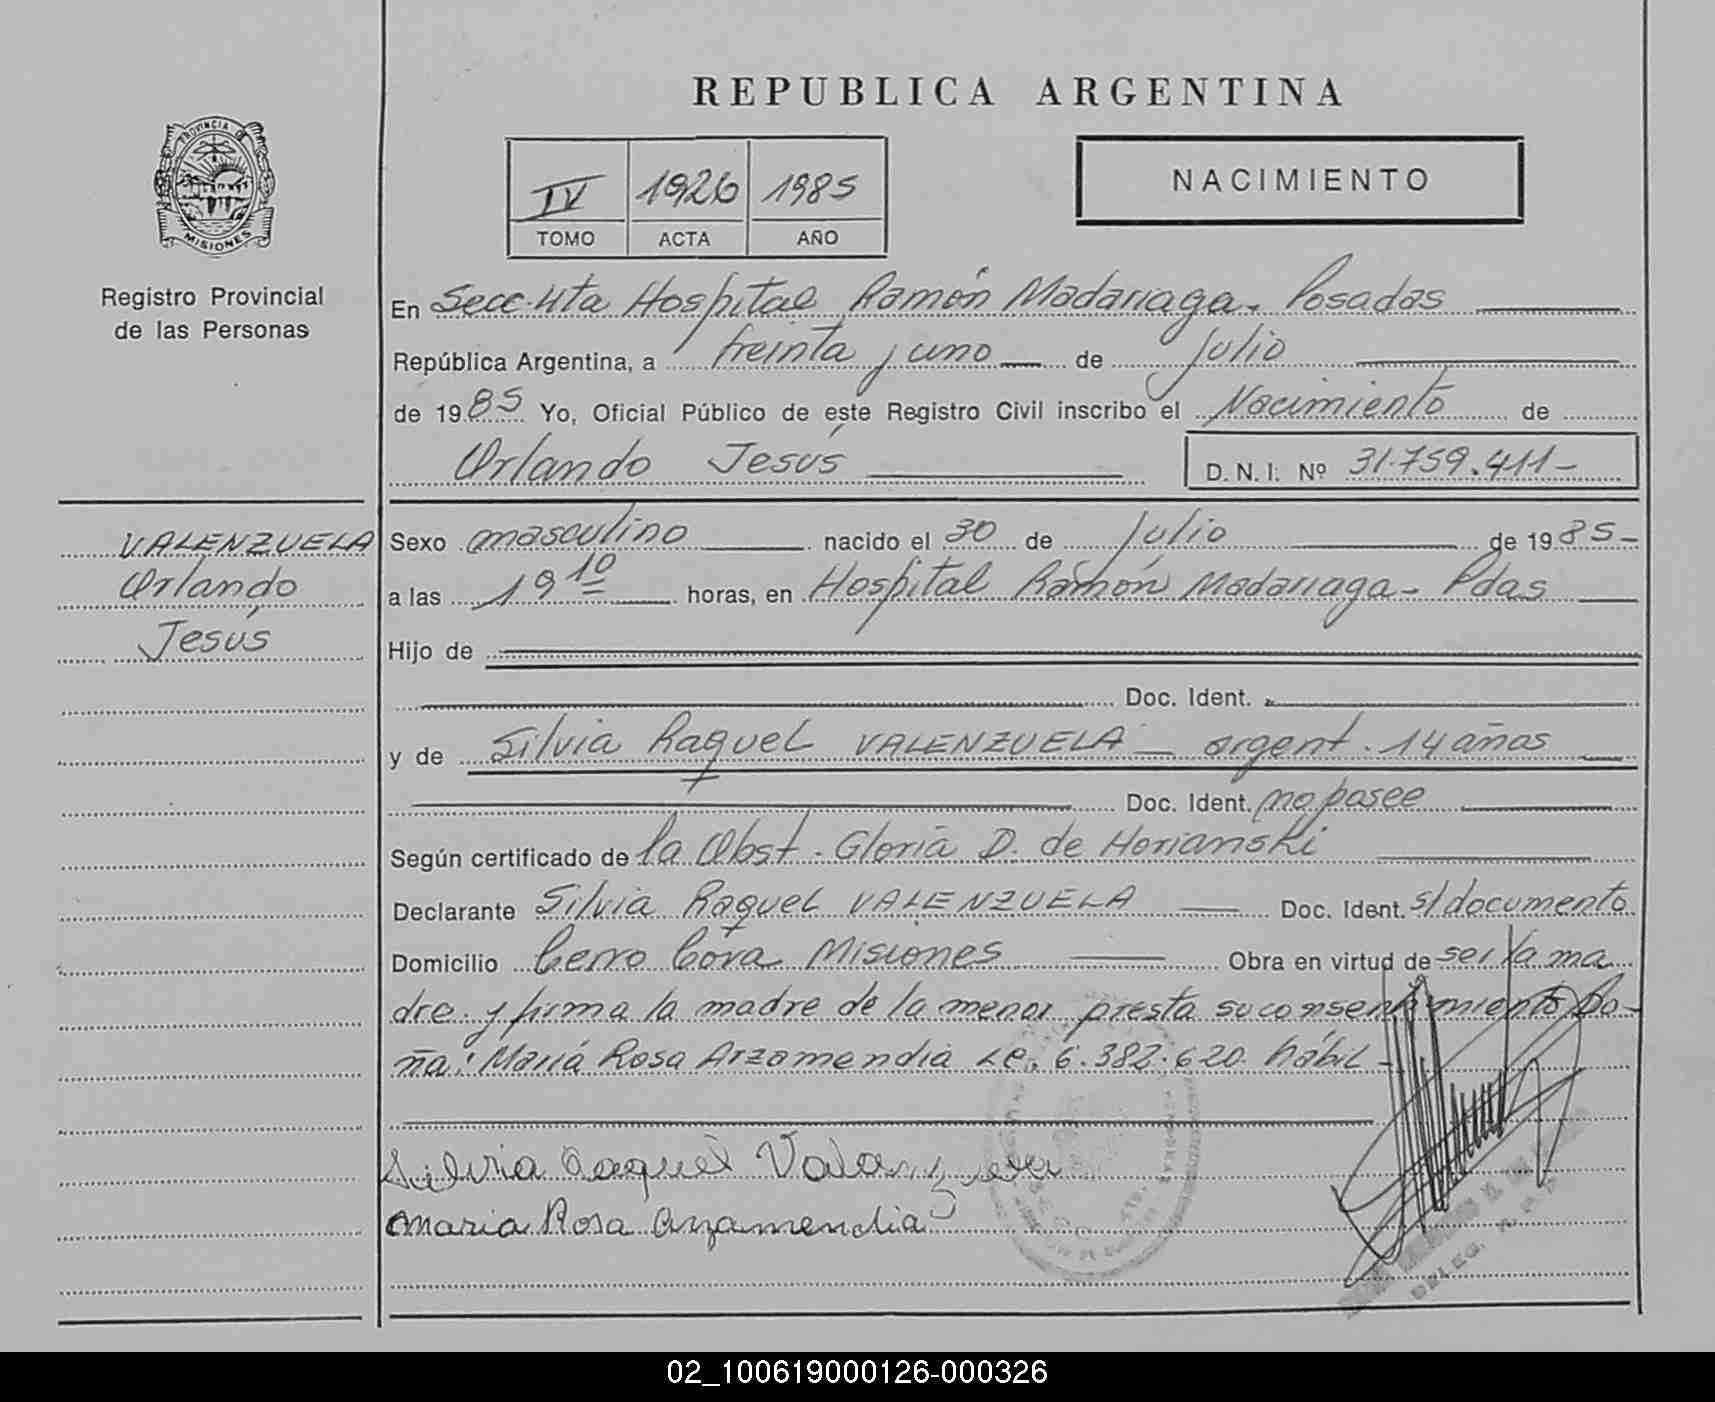 REPUBLICA ARGENTINA
PROVINCIA DE
MISIONES
Registro Provincial
de las Personas
IV 1926 1985
TOMO ACTA AÑO
NACIMIENTO
En Secc. 4ta Hospital Ramón Madariaga - Posadas
República Argentina, a treinta y uno de Julio
de 1985 Yo, Oficial Público de este Registro Civil inscribo el Nacimiento de
Orlando Jesús D. N. I. Nº 31.759.411-
VALENZUELA
Orlando
Jesús
Sexo masculino nacido el 30 de Julio de 1985-
a las 19 10 horas, en Hospital Ramón Madariaga - Pdas
Hijo de
Doc. Ident.
y de Silvia Raquel VALENZUELA - argent. 14 años
Doc. Ident. no posee
Según certificado de la Obst. Gloria D. de Horianski
Declarante Silvia Raquel VALENZUELA Doc. Ident. s/documento
Domicilio Cerro Corá Misiones Obra en virtud de ser la ma
dre. y firma la madre de la menor presta su consentimiento Do-
ña: María Rosa Arzamendia L.e. 6.382.620 hábil -
Silvia Raquel Valenzuela
Maria Rosa Arzamendia
DELEG.
02_100619000126-000326